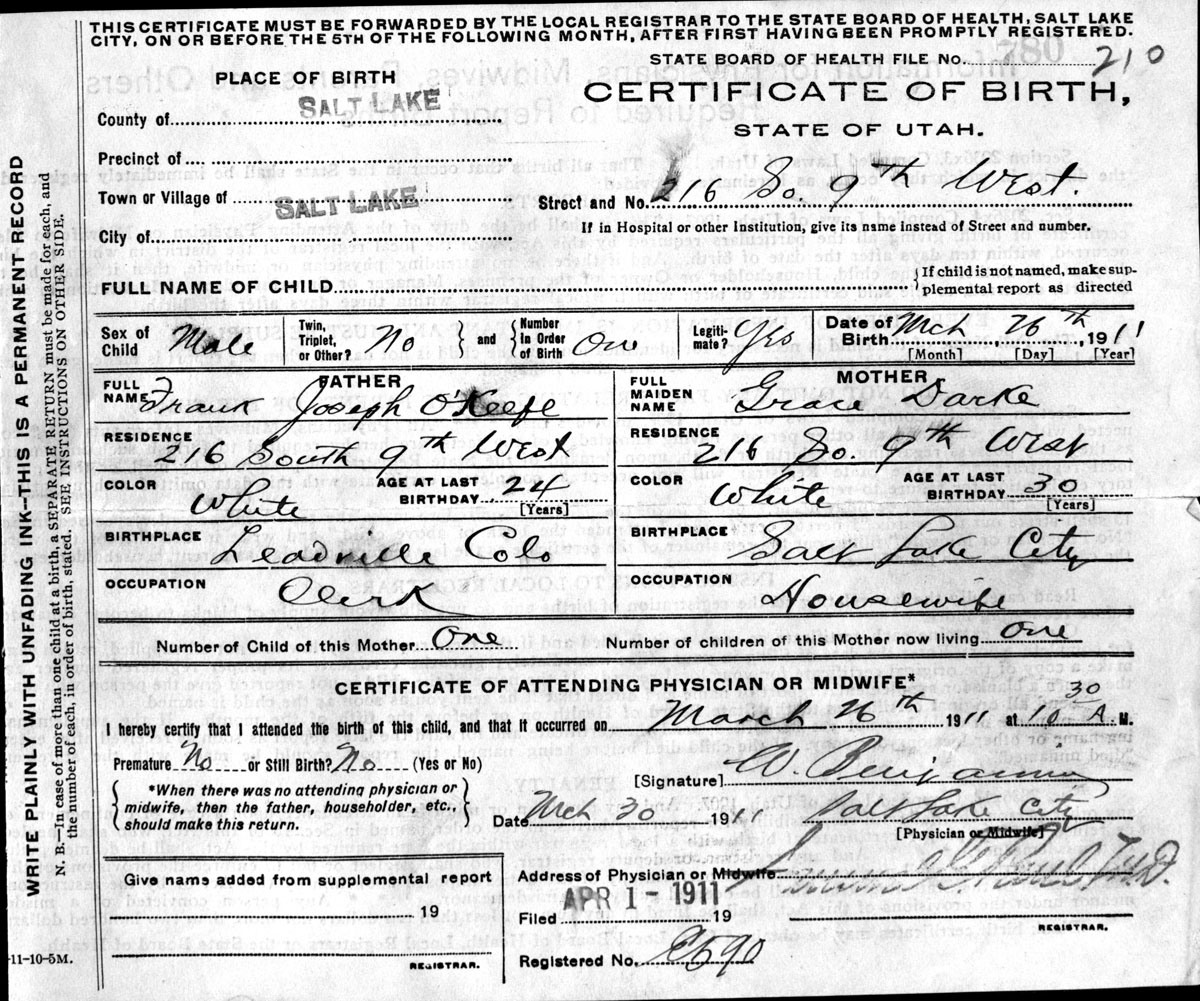 THIS CERTIFICATE MUST BE FORWARDED BY THE LOCAL REGISTRAR TO THE STATE BOARD OF HEALTH, SALT LAKE
CITY, ON OR BEFORE THE 5TH OF THE FOLLOWING MONTH, AFTER FIRST HAVING BEEN PROMPTLY REGISTERED.
STATE BOARD OF HEALTH FILE No. 210
780
PLACE OF BIRTH
CERTIFICATE OF BIRTH,
STATE OF UTAH.
County of SALT LAKE
Precinct of
Town or Village of SALT LAKE
Street and No. 216 So. 9th West.
City of
If in Hospital or other Institution, give its name instead of Street and number.
FULL NAME OF CHILD
If child is not named, make sup-
plemental report as directed
Sex of Child Male
Twin, Triplet, or Other? No
and
Number in Order of Birth One
Legiti-mate? Yes
Date of Birth Mch 26th 1911
[Month] [Day] [Year]
FATHER
FULL NAME Frank Joseph O'Keefe
MOTHER
FULL MAIDEN NAME Grace Darke
RESIDENCE 216 South 9th West
RESIDENCE 216 So. 9th West
COLOR White AGE AT LAST BIRTHDAY 24 [Years]
COLOR White AGE AT LAST BIRTHDAY 30 [Years]
BIRTHPLACE Leadville Colo
BIRTHPLACE Salt Lake City
OCCUPATION Clerk
OCCUPATION Housewife
Number of Child of this Mother One
Number of children of this Mother now living One
CERTIFICATE OF ATTENDING PHYSICIAN OR MIDWIFE*
I hereby certify that I attended the birth of this child, and that it occurred on March 26th 1911 at 10 30 A. M.
Premature No or Still Birth? No (Yes or No)
[Signature] W. Benjamin
*When there was no attending physician or
midwife, then the father, householder, etc.,
should make this return.
Date Mch 30 1911 Salt Lake City
[Physician or Midwife]
Give name added from supplemental report
19
REGISTRAR.
Address of Physician or Midwife
Filed APR 1 - 1911 19
M.D.
REGISTRAR.
Registered No.
WRITE PLAINLY WITH UNFADING INK—THIS IS A PERMANENT RECORD
N. B.—In case of more than one child at a birth, a SEPARATE RETURN must be made for each, and
the number of each, in order of birth, stated. SEE INSTRUCTIONS ON OTHER SIDE.
-11-10-5M.